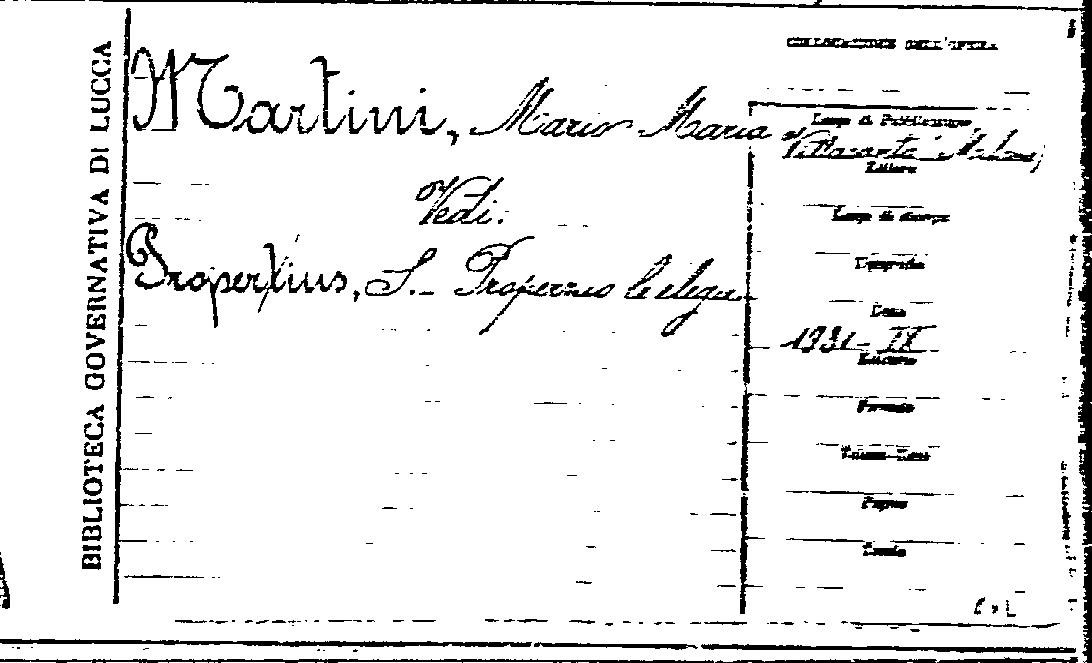 BIBLIOTECA GOVERNATIVA DI LUCCA
COLLOCAZIONE DELL'OPERA
Martini, Mario Maria
Luogo di Pubblicazione
Villasanta (Milano)
Editore
Vedi:
Luogo di stampa
Propertius, S. - Properzio le elegie
Tipografia
Data
1931-IX
Edizione
Formato
Volume-Tomo
Pagine